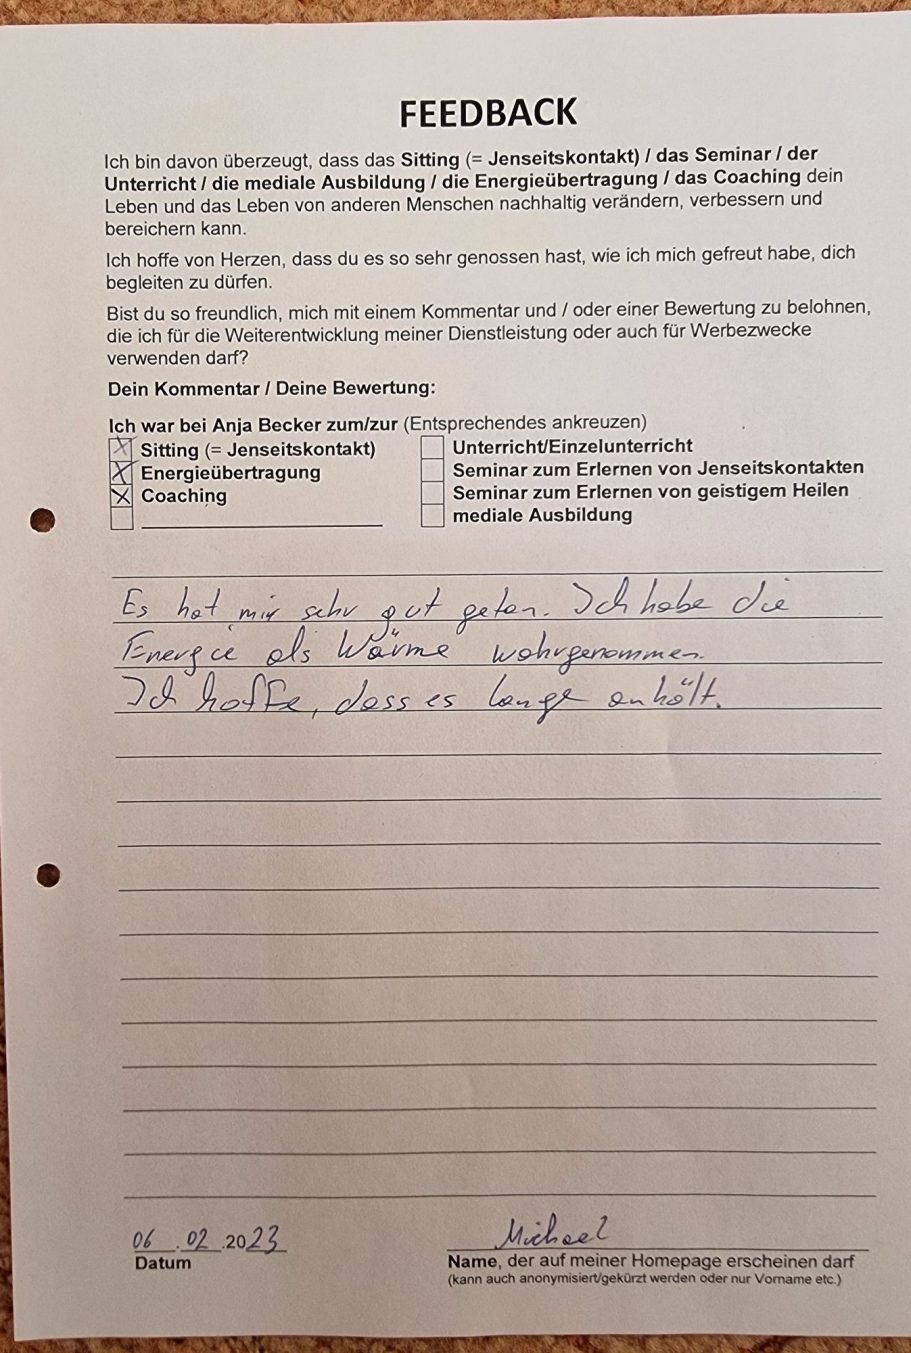 FEEDBACK
Ich bin davon überzeugt, dass das Sitting (= Jenseitskontakt) / das Seminar / der
Unterricht / die mediale Ausbildung / die Energieübertragung / das Coaching dein
Leben und das Leben von anderen Menschen nachhaltig verändern, verbessern und
bereichern kann.
Ich hoffe von Herzen, dass du es so sehr genossen hast, wie ich mich gefreut habe, dich
begleiten zu dürfen.
Bist du so freundlich, mich mit einem Kommentar und / oder einer Bewertung zu belohnen,
die ich für die Weiterentwicklung meiner Dienstleistung oder auch für Werbezwecke
verwenden darf?
Dein Kommentar / Deine Bewertung:
Ich war bei Anja Becker zum/zur (Entsprechendes ankreuzen)
X Sitting (= Jenseitskontakt)
X Energieübertragung
X Coaching
Unterricht/Einzelunterricht
Seminar zum Erlernen von Jenseitskontakten
Seminar zum Erlernen von geistigem Heilen
mediale Ausbildung
Es hat mir sehr gut getan. Ich habe die
Energie als Wärme wahrgenommen.
Ich hoffe, dass es lange anhält.
06.02.2023
Datum
Michael
Name, der auf meiner Homepage erscheinen darf
(kann auch anonymisiert/gekürzt werden oder nur Vorname etc.)